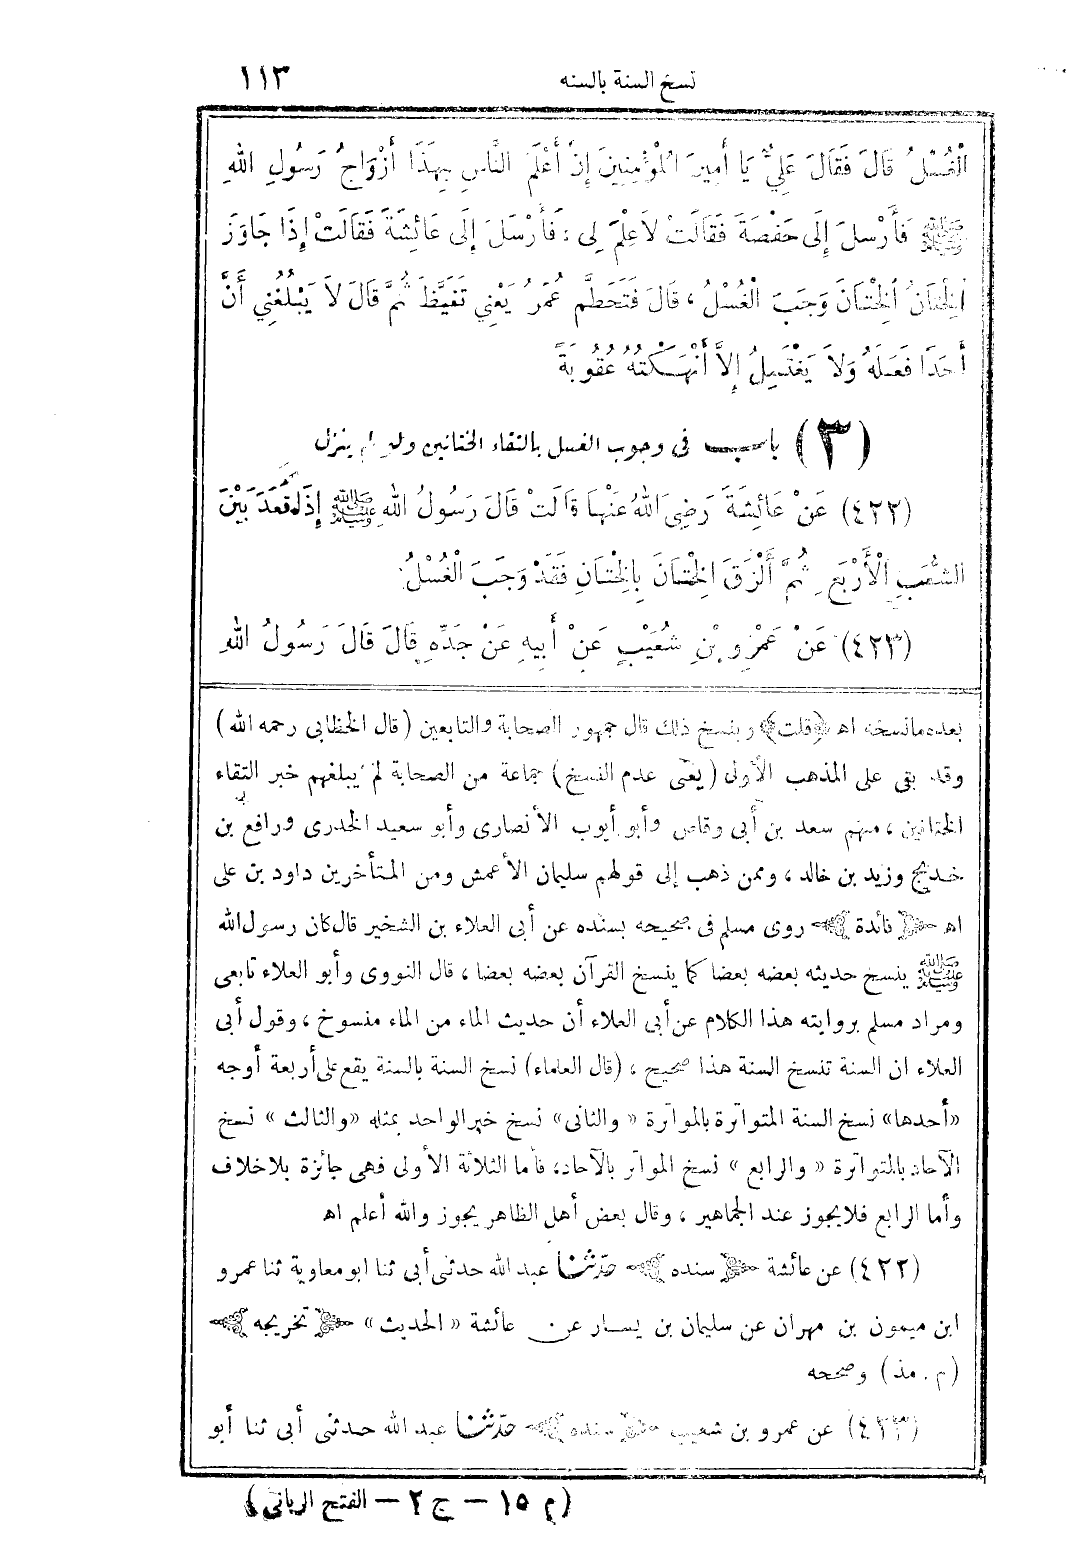 نسخ السنة بالسنه ١١٣
الْغُسْلُ قَالَ فَقَالَ عَلِيٌّ يَا أَمِيرَ الْمُؤْمِنِينَ إِنَّ أَعْلَمَ النَّاسِ بِهَذَا أَزْوَاجُ رَسُولِ اللهِ
ﷺ فَأَرْسَلَ إِلَى حَفْصَةَ فَقَالَتْ لاَعِلْمَ لِى ، فَأَرْسَلَ إِلَى عَائِشَةَ فَقَالَتْ إِذَا جَاوَزَ
الْخِتَانُ الْخِتَانَ وَجَبَ الْغُسْلُ ، قَالَ فَتَحَطَّم عُمَرُ يَعْنِي تَغَيَّظَ ثُمَّ قَالَ لاَ يَبْلُغُنِي أَنَّ
أَحَدًا فَعَلَهُ وَلاَ يَغْتَسِلُ إِلاَّ أَنْهَكْتُهُ عُقُوبَةً
(٣) باب فى وجوب الغسل بالتقاء الختانين ولو لم ينزل
(٤٢٢) عَنْ عَائِشَةَ رَضِىَ اللهُ عَنْهَا قَالَتْ قَالَ رَسُولُ اللهِ ﷺ إِذَا قَعَدَ بَيْنَ
الشُّعَبِ الْأَرْبَعِ ثُمَّ أَلْزَقَ الْخِتَانَ بِالْخِتَانِ فَقَدْ وَجَبَ الْغُسْلُ
(٤٢٣) عَنْ عَمْرِو بْنِ شُعَيْبٍ عَنْ أَبِيهِ عَنْ جَدِّهِ قَالَ قَالَ رَسُولُ اللهِ
بعده مانسخه اهـ ﴿قلت﴾ وبنسخ ذلك قال جمهور الصحابة والتابعين (قال الخطابى رحمه الله)
وقد بقى على المذهب الأولى (يعنى عدم النسخ) جماعة من الصحابة لم يبلغهم خبر التقاء
الختانين ، منهم سعد بن أبى وقاص وأبو أيوب الأنصارى وأبو سعيد الخدرى ورافع بن
خديج وزيد بن خالد ، وممن ذهب إلى قولهم سليمان الأعمش ومن المتأخرين داود بن على
اهـ ﴿فائدة﴾ روى مسلم فى صحيحه بسنده عن أبى العلاء بن الشخير قال كان رسول الله
ﷺ ينسخ حديثه بعضه بعضا كما ينسخ القرآن بعضه بعضا ، قال النووى وأبو العلاء تابعى
ومراد مسلم بروايته هذا الكلام عن أبى العلاء أن حديث الماء من الماء منسوخ ، وقول أبى
العلاء ان السنة تنسخ السنة هذا صحيح ، (قال العلماء) نسخ السنة بالسنة يقع على أربعة أوجه
«أحدها» نسخ السنة المتواترة بالمواترة « والثانى» نسخ خبر الواحد بمثله «والثالث » نسخ
الآحاد بالمتواترة « والرابع » نسخ المواتر بالآحاد، فأما الثلاثة الأولى فهى جائزة بلاخلاف
وأما الرابع فلايجوز عند الجماهير ، وقال بعض أهل الظاهر يجوز والله أعلم اهـ
(٤٢٢) عن عائشة ﴿سنده﴾ حدّثنا عبد الله حدثنى أبى ثنا ابو معاوية ثنا عمرو
ابن ميمون بن مهران عن سليمان بن يسار عن عائشة « الحديث » ﴿تخريجه﴾
(م . مذ) وصححه
(٤٢٣) عن عمرو بن شعيب ﴿سنده﴾ حدّثنا عبد الله حدثنى أبى ثنا أبو
(م ١٥ – ج ٢ – الفتح الربانى)